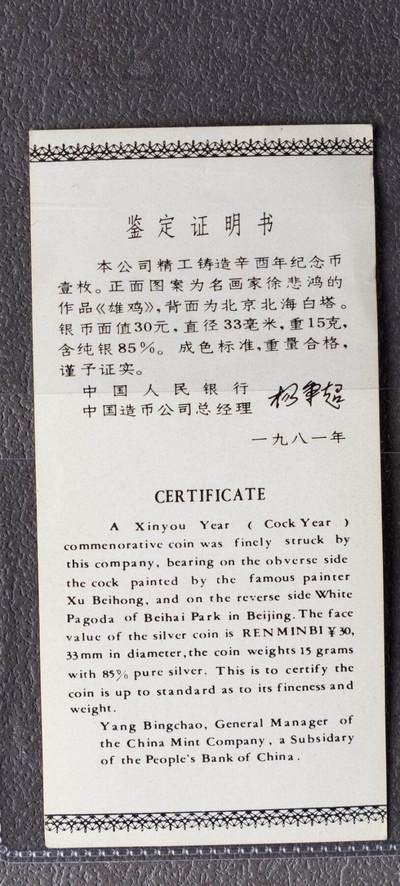 鉴定证明书
本公司精工铸造辛酉年纪念币
壹枚。正面图案为名画家徐悲鸿的
作品《雄鸡》,背面为北京北海白塔。
银币面值30元,直径33毫米,重15克,
含纯银85%。成色标准,重量合格,
谨予证实。
中国人民银行
中国造币公司总经理
一九八一年
CERTIFICATE
A Xinyou Year ( Cock Year )
commenorative coin was finely struck by
this company, bearing on the obverse side
the cock painted by the famous painter
Xu Beihong, and on the reverse side White
Pagoda of Beihai Park in Beijing. The face
value of the silver coin is RENMINBI ¥ 30,
33mm in diameter, the coin weights 15 grams
with 85% pure silver. This is to certify the
coin is up to standard as to its fineness and
weight.
Yang Bingchao, General Manager of
the China Mint Company, a Subsidary
of the People's Bank of China.